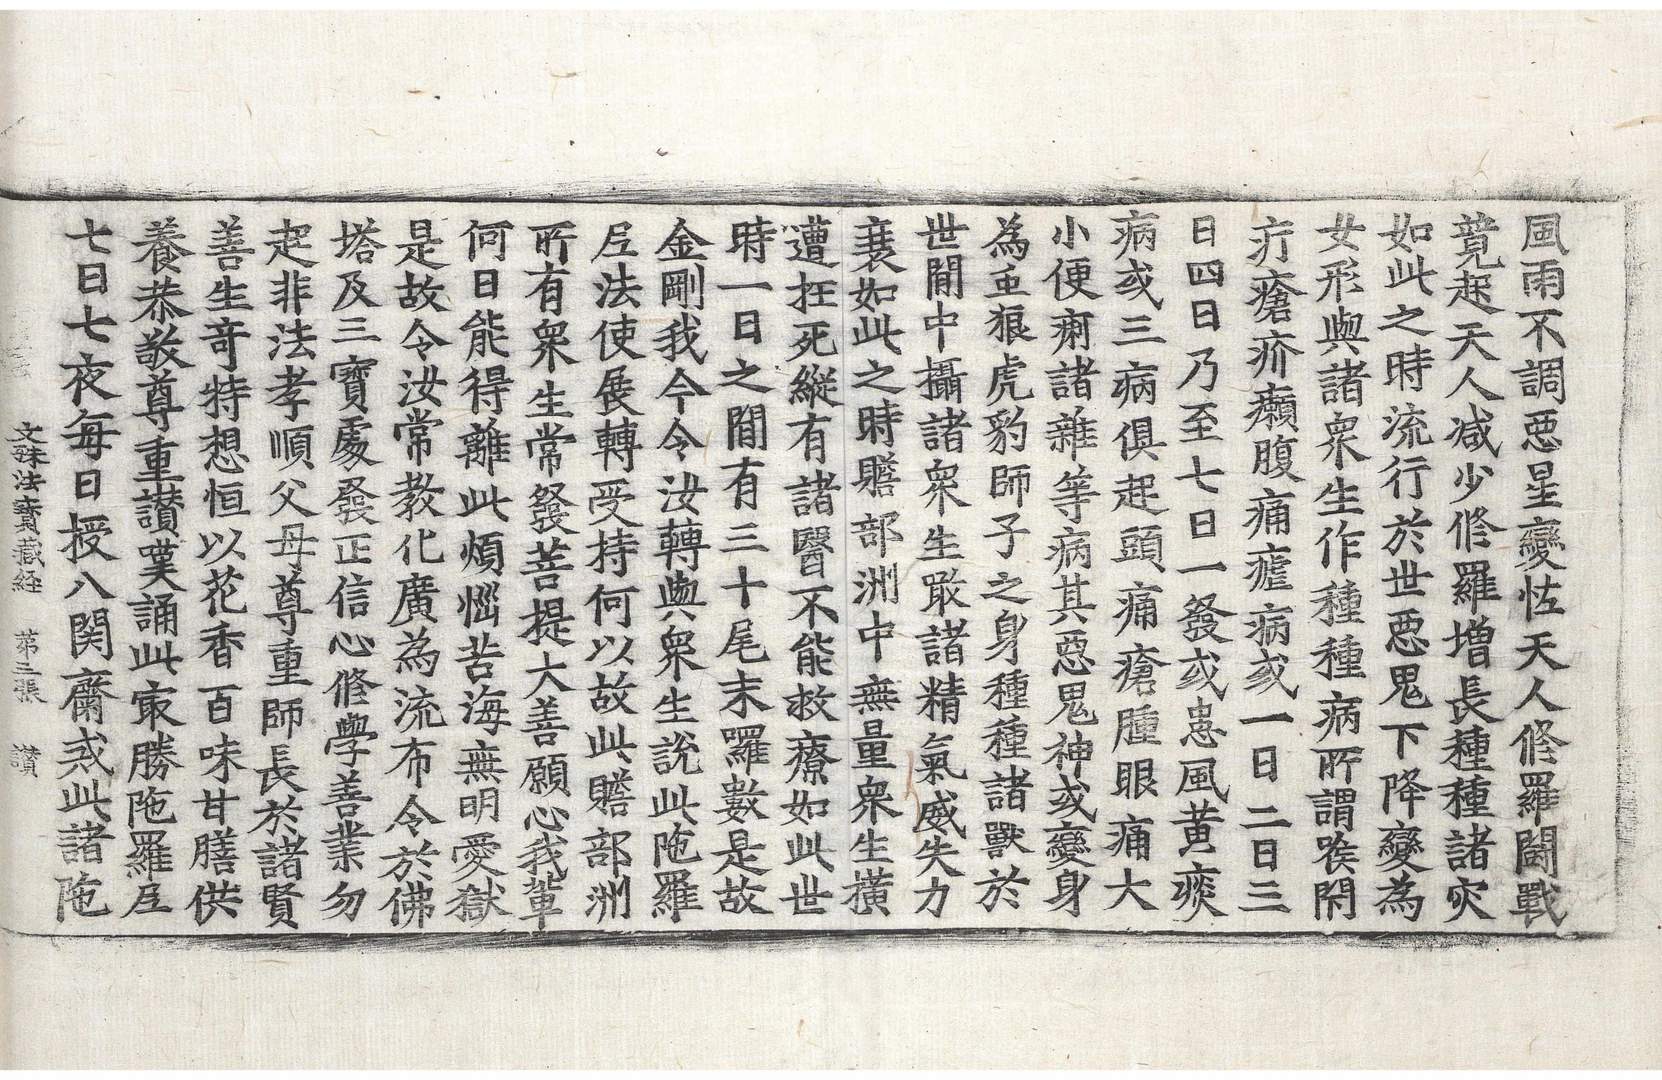 風雨不調惡星變恠天人修羅鬪戰
竟起天人减少修羅增長種種諸灾
如此之時流行於世惡鬼下降變為
女形與諸衆生作種種病所謂喉閇
疔瘡疥癩腹痛瘧病或一日二日三
日四日乃至七日一發或患風黃痰
病或三病俱起頭痛瘡腫眼痛大
小便痢諸雜等病其惡鬼神或變身
為虫狼虎豹師子之身種種諸獸於
世閒中攝諸衆生散諸精氣威失力
衰如此之時贍部洲中無量衆生橫
遭抂死縱有諸醫不能救療如此世
時一日之閒有三十尾末囉數是故
金剛我今令汝轉與衆生說此陁羅
𡰱法使展轉受持何以故此贍部洲
所有衆生常發菩提大善願心我輩
何日能得離此煩惱苦海無明愛獄
是故令汝常教化廣為流布令於佛
塔及三寶處發正信心修學善業勿
起非法孝順父母尊重師長於諸賢
善生竒特想恒以花香百味甘膳供
養恭敬尊重讃嘆誦此㝡勝陁羅𡰱
七日七夜每日授八関齋戒此諸陁
文殊法寶藏経 第三張 讃